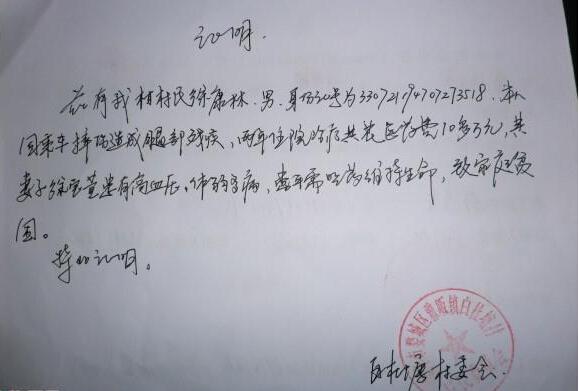 证明.
兹有我村村民徐康林.男.身份证号为330721194707273518.本人
因乘车摔伤造成腿部残疾,两年住院治疗共花医药费10多万元,其
妻子徐 患有高血压、体弱多病,常年需吃药维持生命,致家庭贫
困。
特此证明。
婺城区雅畈镇白杜塘村
白杜塘村委会.